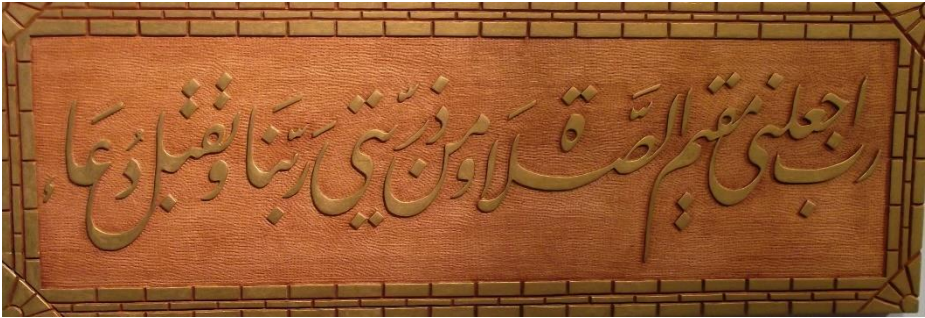 رب اجعلنی مقیم الصَّلاَة ومن ذرّیتی رَبَّنَا وتقبل دُعَاء